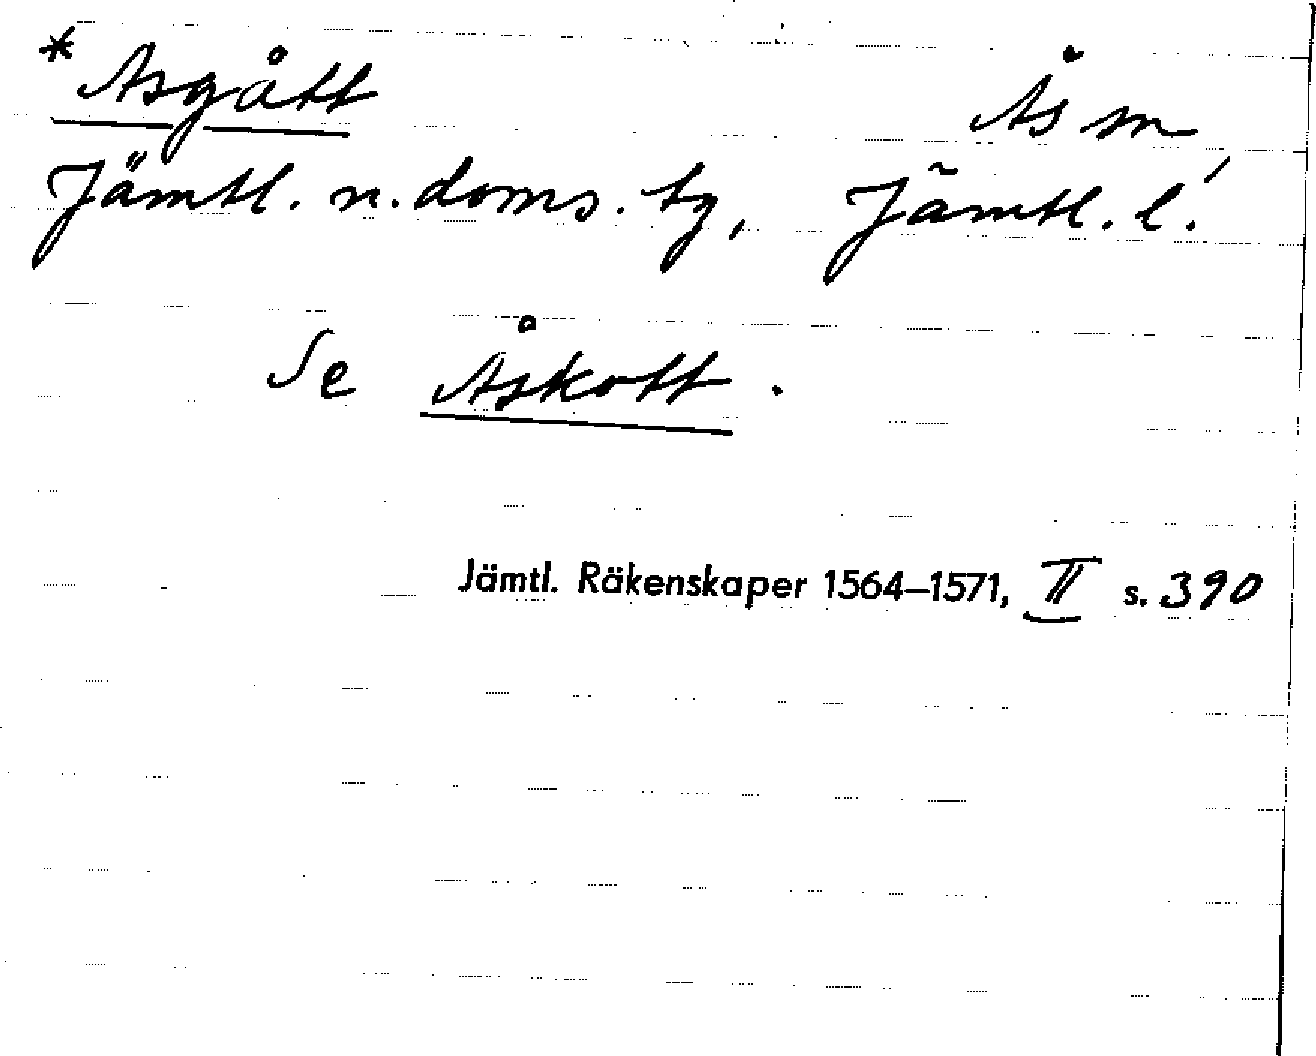 * Asgått Ås sn
Jämtl. n. doms. tg, Jämtl. l.
Se Åskott.
Jämtl. Räkenskaper 1564–1571, II s. 390